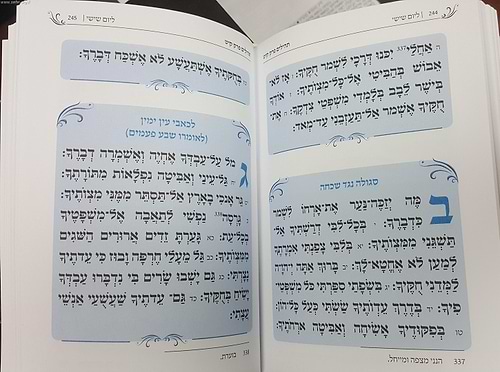 244 | ליום שישי
תהילים פרק קיט
ה אַחֲלַי 337 יִכֹּנוּ דְרָכָי לִשְׁמֹר חֻקֶּיךָ: ו אָז לֹא־
אֵבוֹשׁ בְּהַבִּיטִי אֶל־כָּל־מִצְוֹתֶיךָ: ז אוֹדְךָ
בְּיֹשֶׁר לֵבָב בְּלָמְדִי מִשְׁפְּטֵי צִדְקֶךָ: ח אֶת־
חֻקֶּיךָ אֶשְׁמֹר אַל־תַּעַזְבֵנִי עַד־מְאֹד:
סגולה נגד שכחה
בַּמֶּה יְזַכֶּה־נַּעַר אֶת־אָרְחוֹ לִשְׁמֹר
כִּדְבָרֶךָ: י בְּכָל־לִבִּי דְרַשְׁתִּיךָ אַל־
תַּשְׁגֵּנִי מִמִּצְוֹתֶיךָ: יא בְּלִבִּי צָפַנְתִּי אִמְרָתֶךָ
לְמַעַן לֹא אֶחֱטָא־לָךְ: יב בָּרוּךְ אַתָּה יְהוָה
לַמְּדֵנִי חֻקֶּיךָ: יג בִּשְׂפָתַי סִפַּרְתִּי כֹּל מִשְׁפְּטֵי
פִיךָ: יד בְּדֶרֶךְ עֵדְוֹתֶיךָ שַׂשְׂתִּי כְּעַל כָּל־הוֹן:
טו בְּפִקּוּדֶיךָ אָשִׂיחָה וְאַבִּיטָה אֹרְחֹתֶיךָ:
337 הנני מצפה ומייחל.
ליום שישי | 245
תהילים פרק קיט
טז בְּחֻקֹּתֶיךָ אֶשְׁתַּעֲשָׁע לֹא אֶשְׁכַּח דְּבָרֶךָ:
לכאבי עין ימין
(לאומרו שבע פעמים)
גְּמֹל עַל־עַבְדְּךָ אֶחְיֶה וְאֶשְׁמְרָה דְבָרֶךָ:
יח גַּל־עֵינַי וְאַבִּיטָה נִפְלָאוֹת מִתּוֹרָתֶךָ:
יט גֵּר אָנֹכִי בָאָרֶץ אַל־תַּסְתֵּר מִמֶּנִּי מִצְוֹתֶיךָ:
כ גָּרְסָה 338 נַפְשִׁי לְתַאֲבָה אֶל־מִשְׁפָּטֶיךָ
בְכָל־עֵת: כא גָּעַרְתָּ זֵדִים אֲרוּרִים הַשֹּׁגִים
מִמִּצְוֹתֶיךָ: כב גַּל מֵעָלַי חֶרְפָּה וָבוּז כִּי עֵדֹתֶיךָ
נָצָרְתִּי: כג גַּם יָשְׁבוּ שָׂרִים בִּי נִדְבָּרוּ עַבְדְּךָ
יָשִׂיחַ בְּחֻקֶּיךָ: כד גַּם־עֵדֹתֶיךָ שַׁעֲשֻׁעָי אַנְשֵׁי
עֲצָתִי:
338 בוערת.